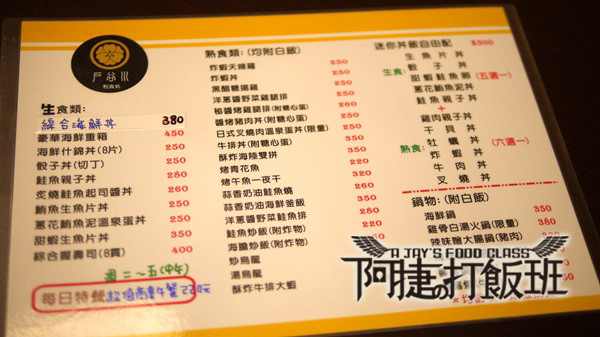 戶谷川
和食処
生食類:
綜合海鮮丼 380
豪華海鮮重箱 450
海鮮什錦丼(8片) 250
骰子丼(切丁) 260
鮭魚親子丼
炙燒鮭魚起司醬丼 260
鮪魚生魚片丼 350
蔥花鮪魚泥溫泉蛋丼
甜蝦生魚片丼 350
綜合握壽司(8貫) 400
週二~五(中午)
每日特餐 超值商業午餐 220元
熟食類:(均附白飯)
炸蝦天婦羅 250
炸蝦丼
黑醋糖揚雞
洋蔥醬野菜雞腿排(附糖心蛋)
秘醬烤雞腿排(附糖心蛋)
醬烤豬肉丼(附糖心蛋)
日式叉燒肉溫泉蛋丼(限量)
牛排丼(附糖心蛋)
酥炸海陸雙拼
烤青花魚
烤午魚一夜干
蒜香奶油鮭魚燒
蒜香奶油海鮮釜飯
洋蔥醬野菜鮭魚排
鮭魚炒飯(附炸物)
海膽炒飯(附炸物)
炒烏龍
湯烏龍
酥炸牛排大蝦
迷你丼飯自由配 $300
生食: (五選一)
生魚片丼
骰子丼
甜蝦鮭魚卵
蔥花鮪魚泥丼
鮭魚親子丼
+
熟食: (六選一)
雞肉親子丼
干貝丼
牡蠣丼
炸蝦丼
牛肉丼
叉燒丼
鍋物:(附白飯)
海鮮鍋 350
雞骨白湯火鍋(限量) 380
辣味噌大腸鍋(豬肉)
A JAY'S FOOD CLASS
阿捷の打飯班